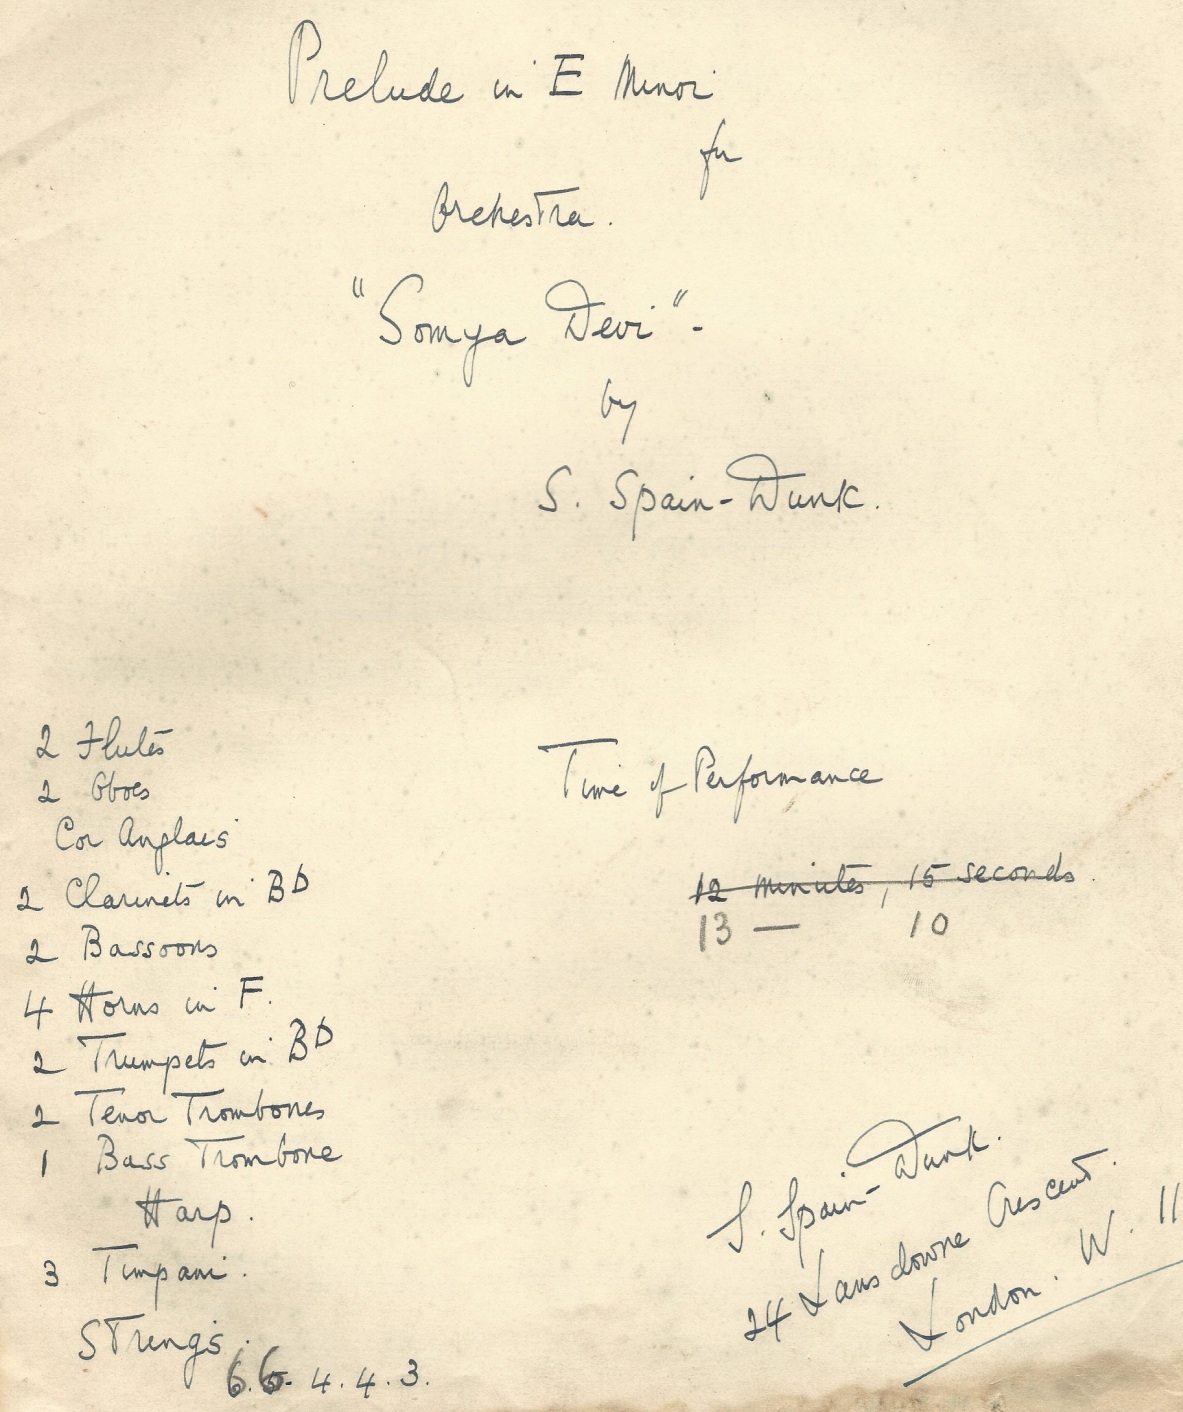 Prelude in E Minor
for
Orchestra.
"Somya Devi"-
by
S. Spain-Dunk.
2 Flutes
2 Oboes
Cor Anglais
2 Clarinets in B♭
2 Bassoons
4 Horns in F.
2 Trumpets in B♭
2 Tenor Trombones
1 Bass Trombone
Harp.
3 Timpani.
Strings.
6.6. 4.4.3.
Time of Performance
12 minutes, 15 seconds.
13 — 10
S. Spain-Dunk.
24 Lansdowne Crescent.
London. W. 11